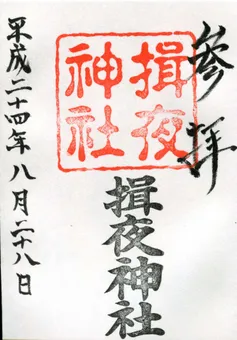 參拝
揖夜
神社
揖夜神社
平成二十四年八月二十八日